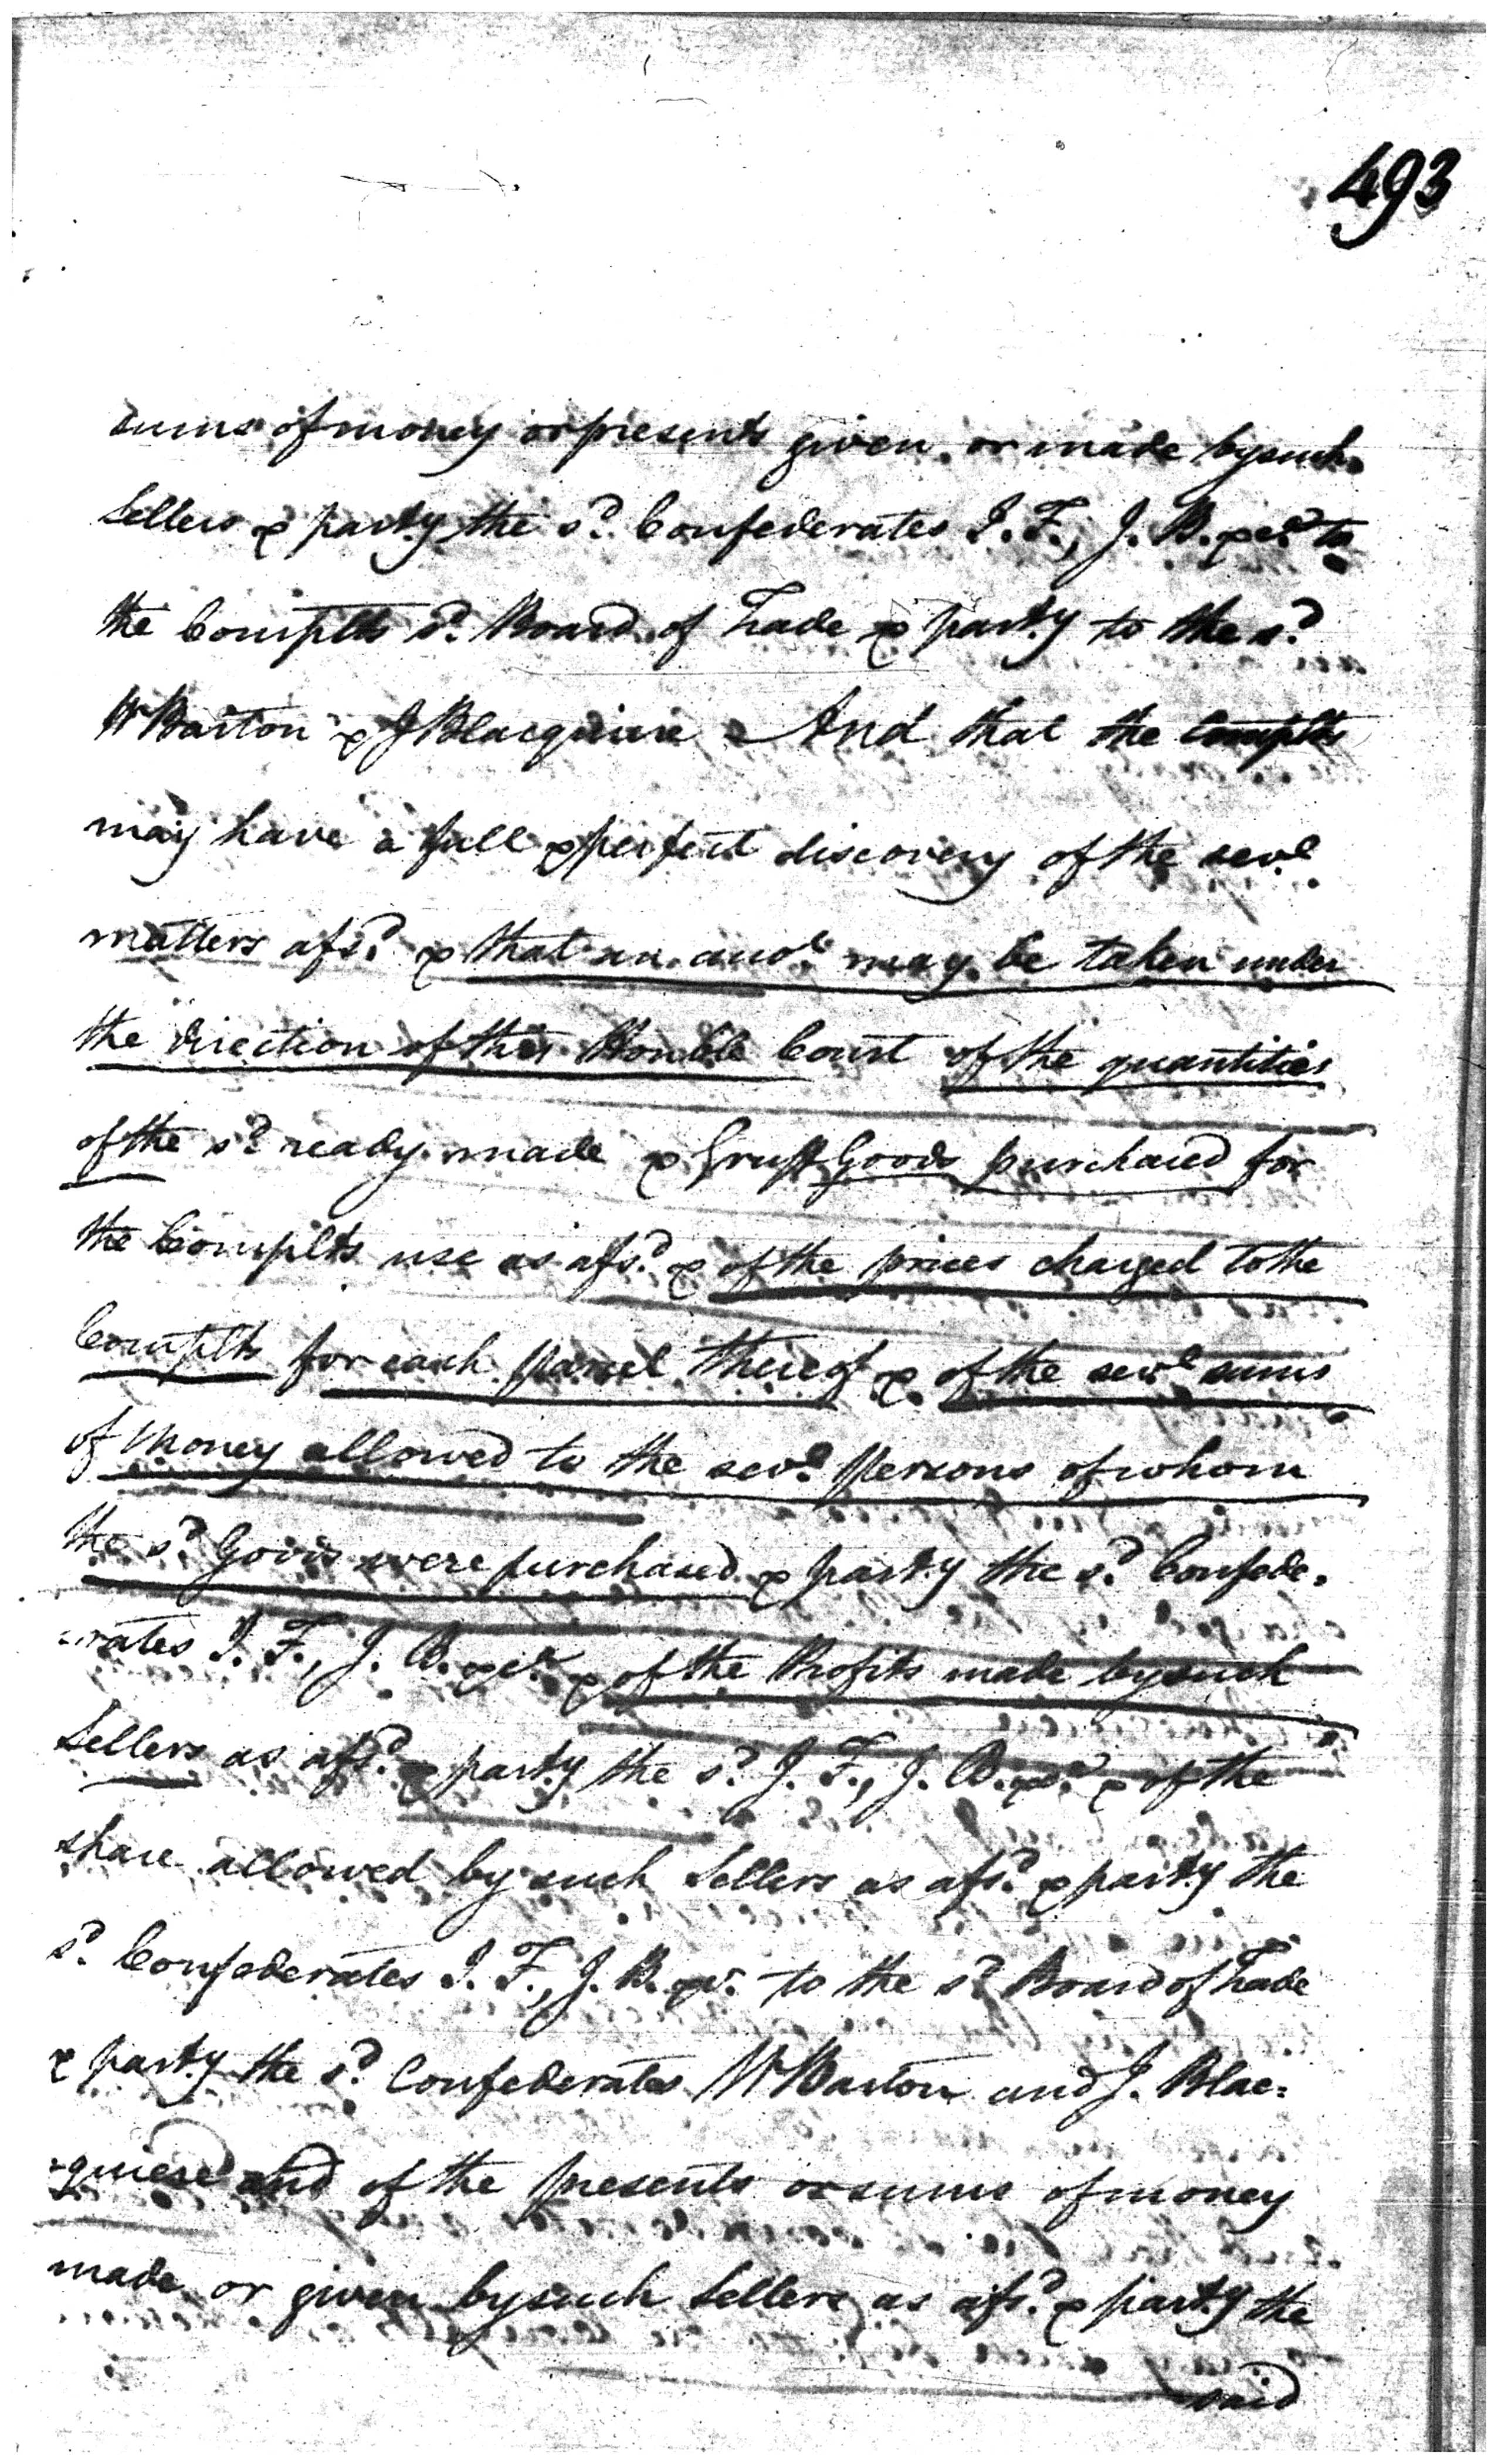 493
sums of money or presents given or made by such
Sellers & party the sd. Confederates I. F., J. B. &ca. to
the Complts sd. Board of Trade & party to the sd.
W Barton & J Blacquiere And that the Complts
may have a full & perfect discovery of the sevl
matters afsd. & that an accot. may be taken under
the direction of this Honble Court of the quantities
of the sd ready made & Gruff Goods purchased for
the Complts use as afsd. & of the prices charged to the
Complts for each parcel thereof & of the sevl sums
of Money allowed to the sevl. Persons of whom
the sd Goods were purchased & party the sd. Confede-
-rates I. F., J. B. &ca. & of the Profits made by such
Sellers as afsd. & party the sd. J. F., J. B. &ca. & of the
share allowed by such Sellers as afsd. & party the
sd. Confederates I. F., J. B. &ca. to the sd Board of Trade
& party the sd. Confederates W Barton and J. Blac=
-quiere and of the presents or sums of money
made or given by such Sellers as afsd. & party the
said